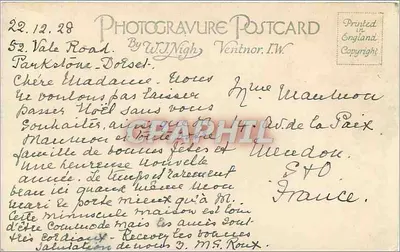 22.12.28
PHOTOGRAVURE POSTCARD
By W.J. Nigh, Ventnor, I.W
Printed in England Copyright
52. Vale Road.
Parkstone. Dorset.
Chère Madame. Nous
ne voulons pas laisser
passer Noël sans vous
souhaiter, ainsi
Maumon et
famille de bonnes fêtes et
une heureuse nouvelle
année. Le temps est rarement
beau ici quand même mon
mari le porte mieux qu'à
Cette minuscule maison est loin
d'être commode mais les amis sont
très cordiaux. Recevez les bonnes
salutations de nous 2. MG. Roux.
Mme Maumon
Av. de la Paix
Meudon
S & O
France.
CPAPHIL